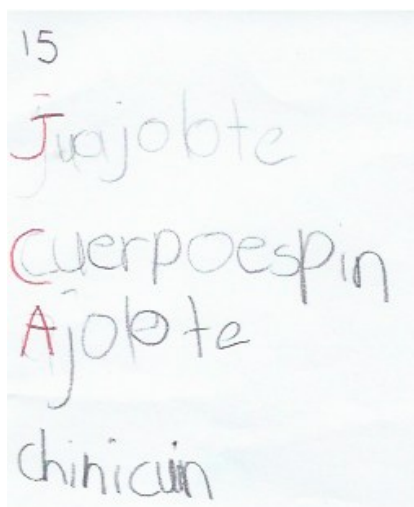 15
Juajolote
Cuerpoespin
Ajolote
chinicuin